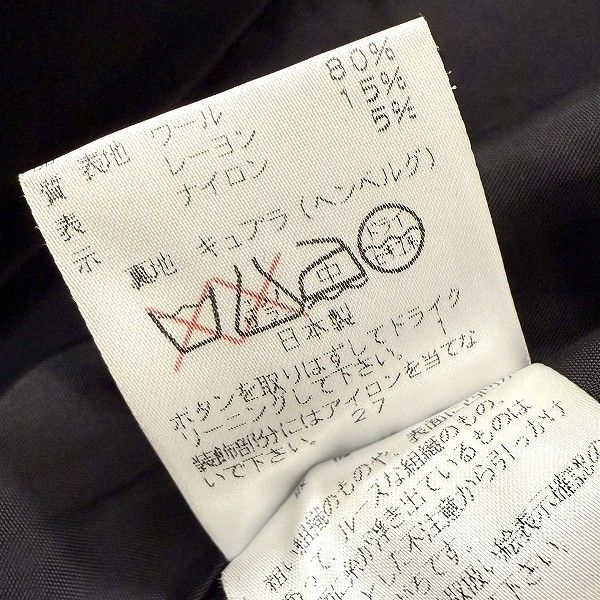 品質表示
表地 ウール 80%
レーヨン 15%
ナイロン 5%
裏地 キュプラ(ヘンヘルグ)
中
ドライ
セキユ系
日本製
ボタンを取りはずしてドライク
リーニングして下さい。
装飾部分にはアイロンを当てな
いで下さい。 27
組織のものや、表面に
って、ルーズな組織のもの、
に糸が浮き出ているものは
とした不注意から引っかけ
ちです。
取扱い絵表示
下さい。